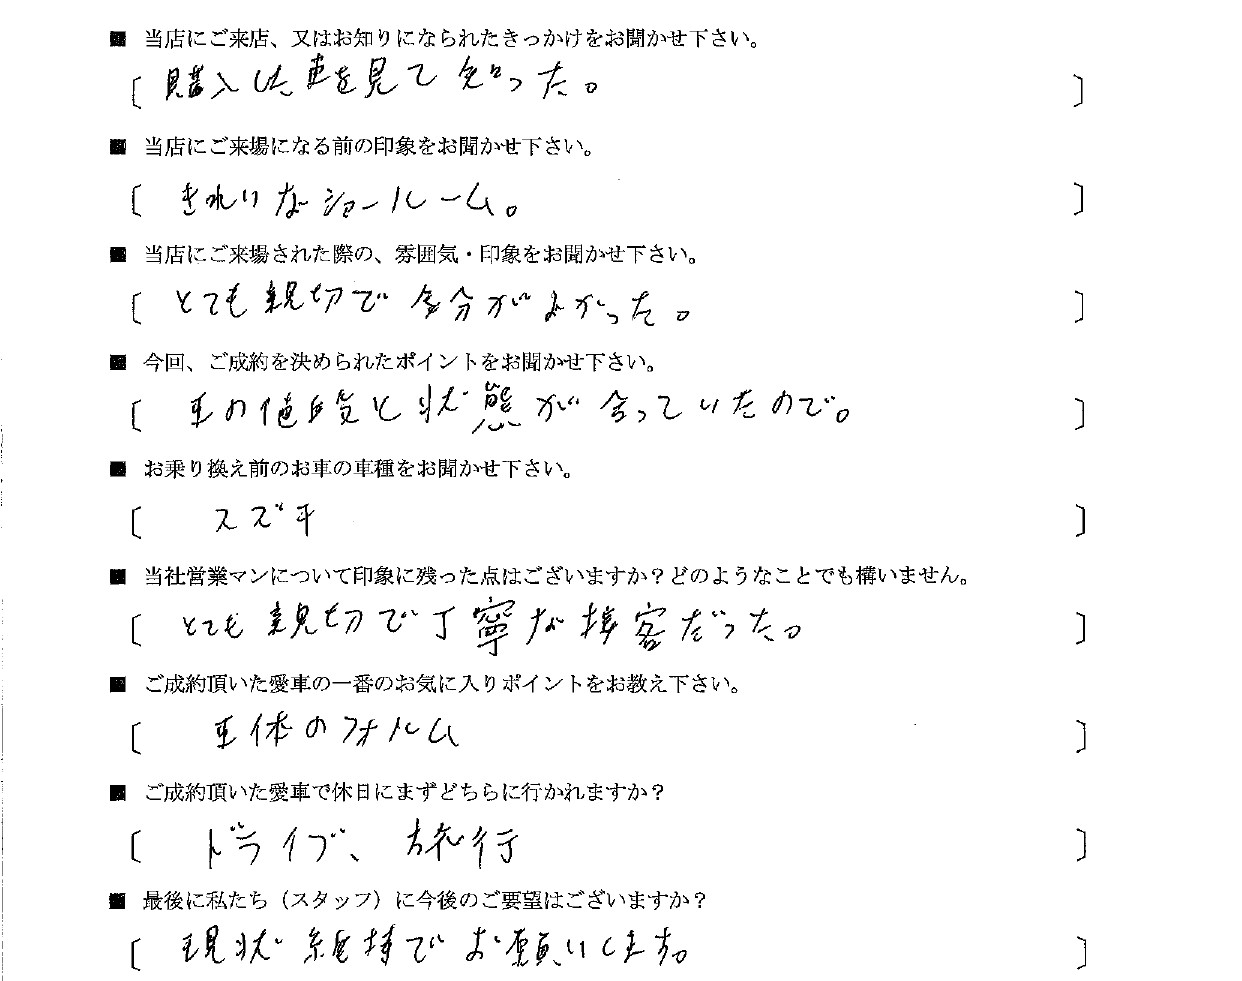 ■ 当店にご来店、又はお知りになられたきっかけをお聞かせ下さい。
〔 購入した車を見て知った。 〕
■ 当店にご来場になる前の印象をお聞かせ下さい。
〔 きれいなショールーム。 〕
■ 当店にご来場された際の、雰囲気・印象をお聞かせ下さい。
〔 とても親切で気分がよかった。 〕
■ 今回、ご成約を決められたポイントをお聞かせ下さい。
〔 車の値段と状態が合っていたので。 〕
■ お乗り換え前のお車の車種をお聞かせ下さい。
〔 スズキ 〕
■ 当社営業マンについて印象に残った点はございますか？どのようなことでも構いません。
〔 とても親切で丁寧な接客だった。 〕
■ ご成約頂いた愛車の一番のお気に入りポイントをお教え下さい。
〔 車体のフォルム 〕
■ ご成約頂いた愛車で休日にまずどちらに行かれますか？
〔 ドライブ、旅行 〕
■ 最後に私たち（スタッフ）に今後のご要望はございますか？
〔 現状維持でお願いします。 〕